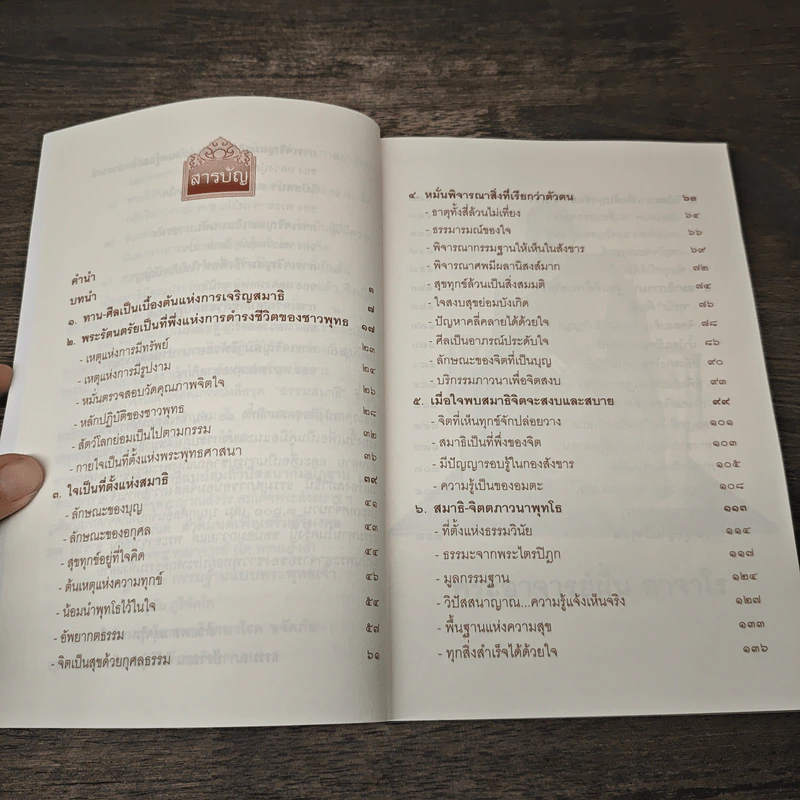 สารบัญ
คำนำ
บทนำ ๓
๑. ทาน-ศีลเป็นเบื้องต้นแห่งการเจริญสมาธิ ๗
๒. พระรัตนตรัยเป็นที่พึ่งแห่งการดำรงชีวิตของชาวพุทธ ๑๗
- เหตุแห่งการมีทรัพย์ ๒๓
- เหตุแห่งการมีรูปงาม ๒๔
- หมั่นตรวจสอบวัดคุณภาพจิตใจ ๒๖
- หลักปฏิบัติของชาวพุทธ ๒๘
- สัตว์โลกย่อมเป็นไปตามกรรม ๓๒
- กายใจเป็นที่ตั้งแห่งพระพุทธศาสนา ๓๖
๓. ใจเป็นที่ตั้งแห่งสมาธิ ๓๙
- ลักษณะของบุญ ๔๑
- ลักษณะของอกุศล ๔๓
- สุขทุกข์อยู่ที่ใจคิด ๔๔
- ต้นเหตุแห่งความทุกข์ ๔๖
- น้อมนำพุทโธไว้ในใจ ๕๔
- อัพยากตธรรม ๕๗
- จิตเป็นสุขด้วยกุศลธรรม ๖๑
๔. หมั่นพิจารณาสิ่งที่เรียกว่าตัวตน ๖๓
- ธาตุทั้งสี่ล้วนไม่เที่ยง ๖๔
- ธรรมารมณ์ของใจ ๖๖
- พิจารณากรรมฐานให้เห็นในสังขาร ๖๙
- พิจารณาศพมีผลานิสงส์มาก ๗๒
- สุขทุกข์ล้วนเป็นสิ่งสมมติ ๗๔
- ใจสงบสุขย่อมบังเกิด ๗๖
- ปัญหาคลี่คลายได้ด้วยใจ ๗๘
- ศีลเป็นอาภรณ์ประดับใจ ๘๖
- ลักษณะของจิตที่เป็นบุญ ๙๐
- บริกรรมภาวนาเพื่อจิตสงบ ๙๓
๕. เมื่อใจพบสมาธิจิตจะสงบและสบาย ๙๙
- จิตที่เห็นทุกข์จักปล่อยวาง ๑๐๑
- สมาธิเป็นที่พึ่งของจิต ๑๐๓
- มีปัญญารอบรู้ในกองสังขาร ๑๐๕
- ความรู้เป็นของอมตะ ๑๐๘
๖. สมาธิ-จิตตภาวนาพุทโธ ๑๑๓
- ที่ตั้งแห่งธรรมวินัย ๑๑๔
- ธรรมะจากพระไตรปิฎก ๑๑๗
- มูลกรรมฐาน ๑๒๔
- วิปัสสนาญาณ...ความรู้แจ้งเห็นจริง ๑๒๗
- พื้นฐานแห่งความสุข ๑๓๓
- ทุกสิ่งสำเร็จได้ด้วยใจ ๑๓๖